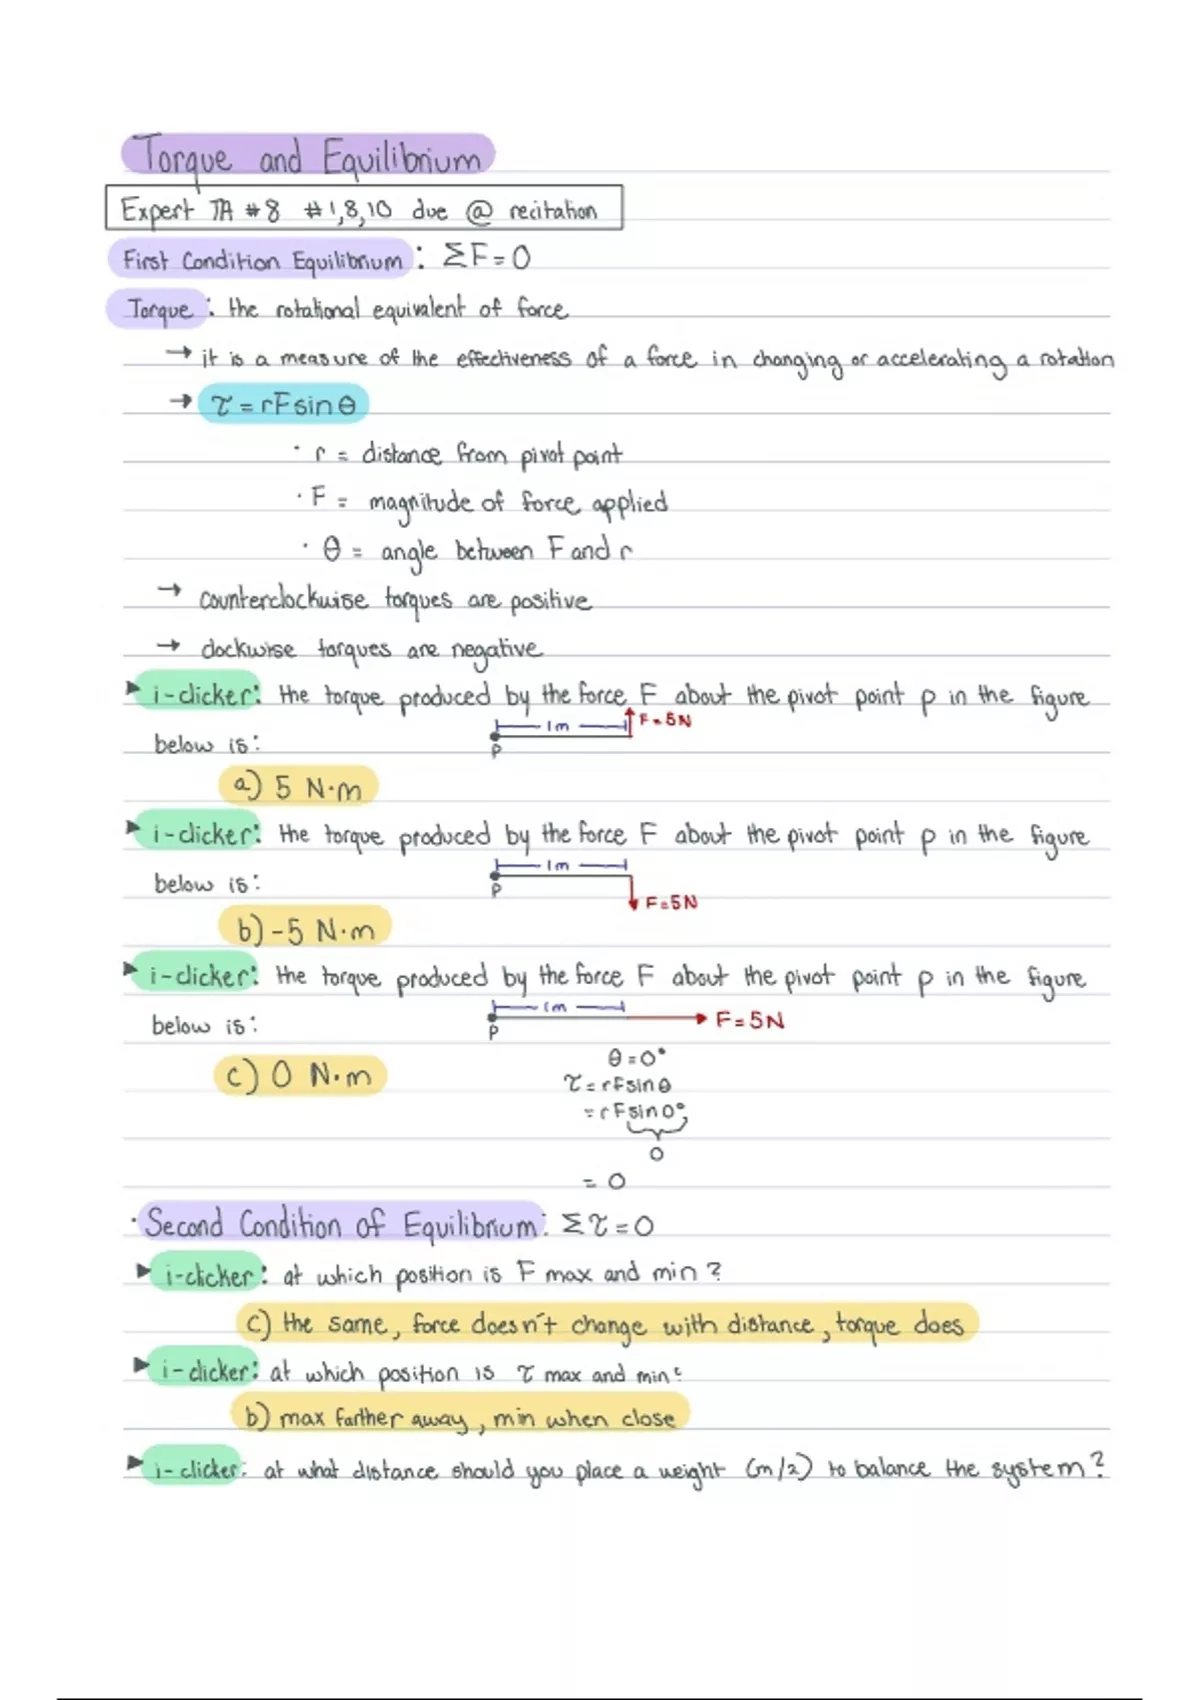 Torque and Equilibrium
Expert TA #8 #1,8,10 due @ recitation
First Condition Equilibrium: ΣF=0
Torque: the rotational equivalent of force
→ it is a measure of the effectiveness of a force in changing or accelerating a rotation
→ τ = rFsinθ
· r = distance from pivot point
· F = magnitude of force applied
· θ = angle between F and r
→ counterclockwise torques are positive
→ clockwise torques are negative
▶ i-clicker: the torque produced by the force F about the pivot point p in the figure
1m F=5N
below is:
P
a) 5 N·m
▶ i-clicker: the torque produced by the force F about the pivot point p in the figure
1m
below is:
P
F=5N
b) -5 N·m
▶ i-clicker: the torque produced by the force F about the pivot point p in the figure
1m
below is: F=5N
P
θ=0°
c) 0 N·m
τ=rFsinθ
=rFsin0°
0
= 0
· Second Condition of Equilibrium: Στ=0
▶ i-clicker: at which position is F max and min?
c) the same, force doesn't change with distance, torque does
▶ i-clicker: at which position is τ max and min?
b) max farther away, min when close
▶ i-clicker: at what distance should you place a weight (m/2) to balance the system?